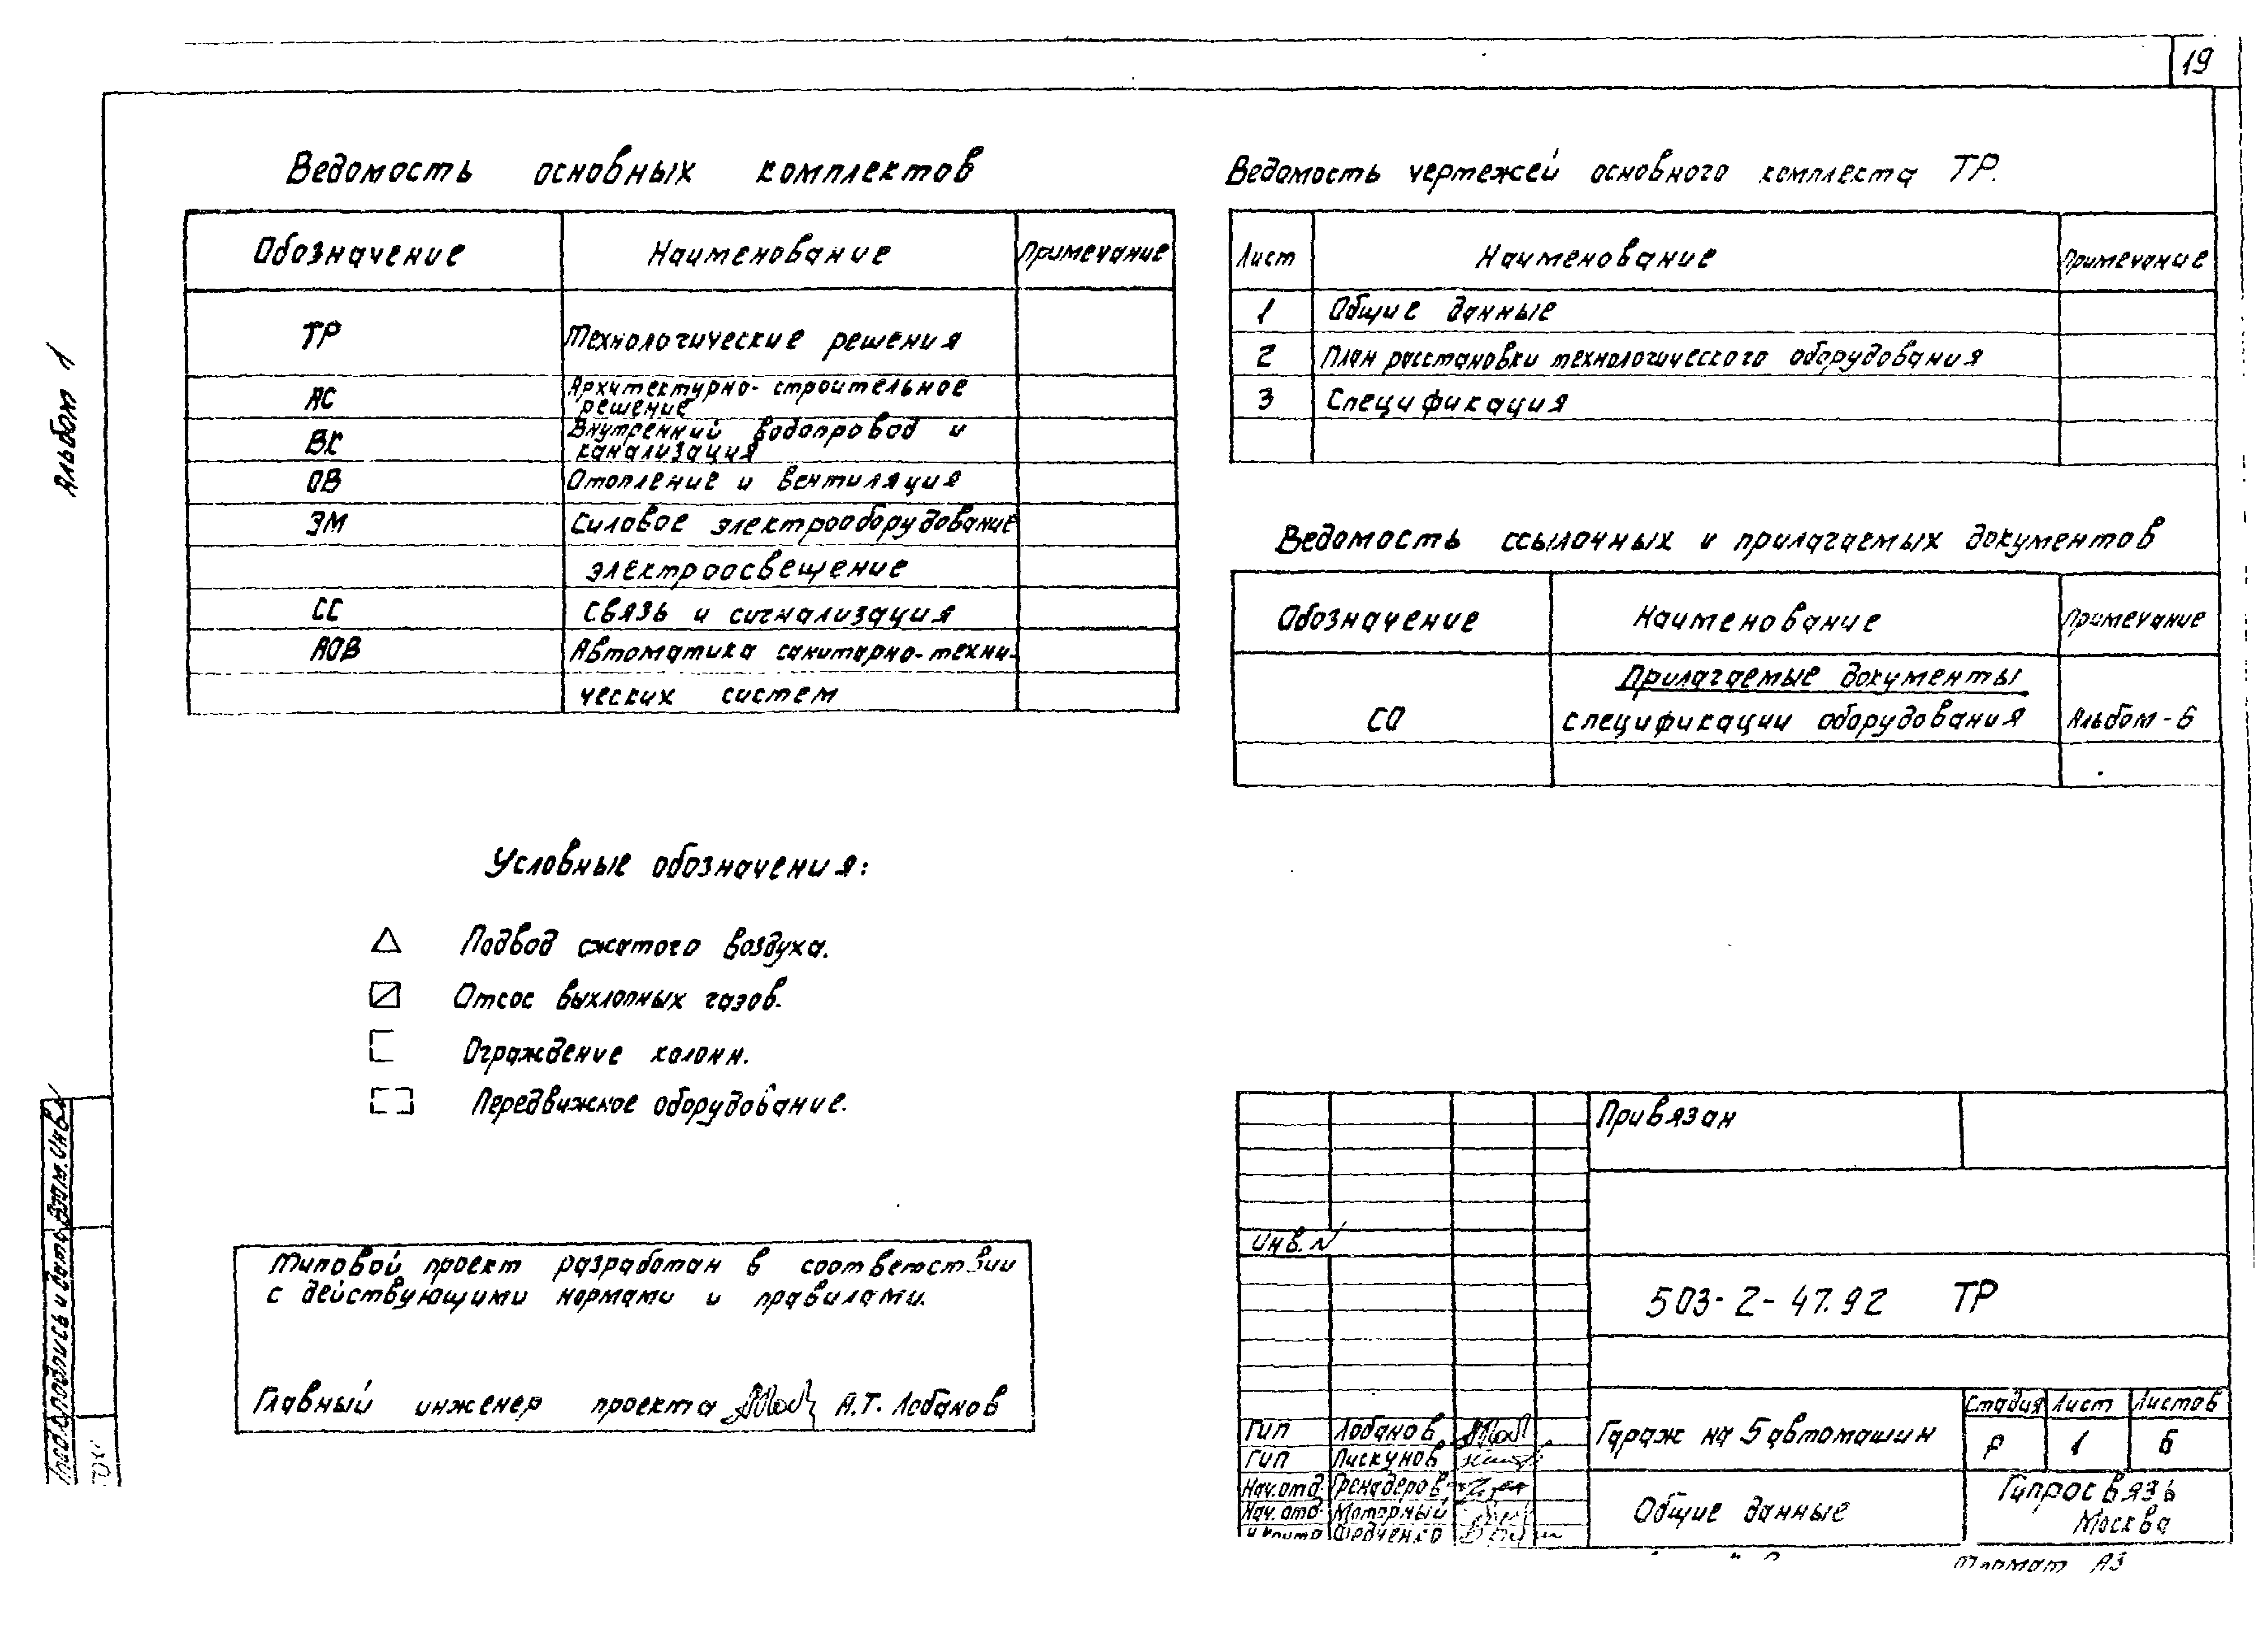 19
Альбом 1
Ведомость основных комплектов
Обозначение Наименование Примечание
ТР Технологические решения
АС Архитектурно-строительное
решение
ВК Внутренний водопровод и
канализация
ОВ Отопление и вентиляция
ЭМ Силовое электрооборудование
электроосвещение
СС Связь и сигнализация
АОВ Автоматика санитарно-техни-
ческих систем
Ведомость чертежей основного комплекта ТР.
Лист Наименование Примечание
1 Общие данные
2 План расстановки технологического оборудования
3 Спецификация
Ведомость ссылочных и прилагаемых документов
Обозначение Наименование Примечание
Прилагаемые документы
СО спецификации оборудования Альбом-6
Условные обозначения:
Подвод сжатого воздуха.
Отсос выхлопных газов.
Ограждение колонн.
Передвижное оборудование.
Типовой проект разработан в соответствии
с действующими нормами и правилами.
Главный инженер проекта А.Т. Лобанов
Взам. инв. №
Подпись и дата
Привязан
Инв. №
503-2-47.92 ТР
Стадия Лист Листов
ГИП Лобанов
Гараж на 5 автомашин Р 1 6
ГИП Пискунов
Нач. отд. Гренадеров
Нач. отд. Моторный
Общие данные
Гипросвязь
Москва
Н контр Федченко
Формат А3